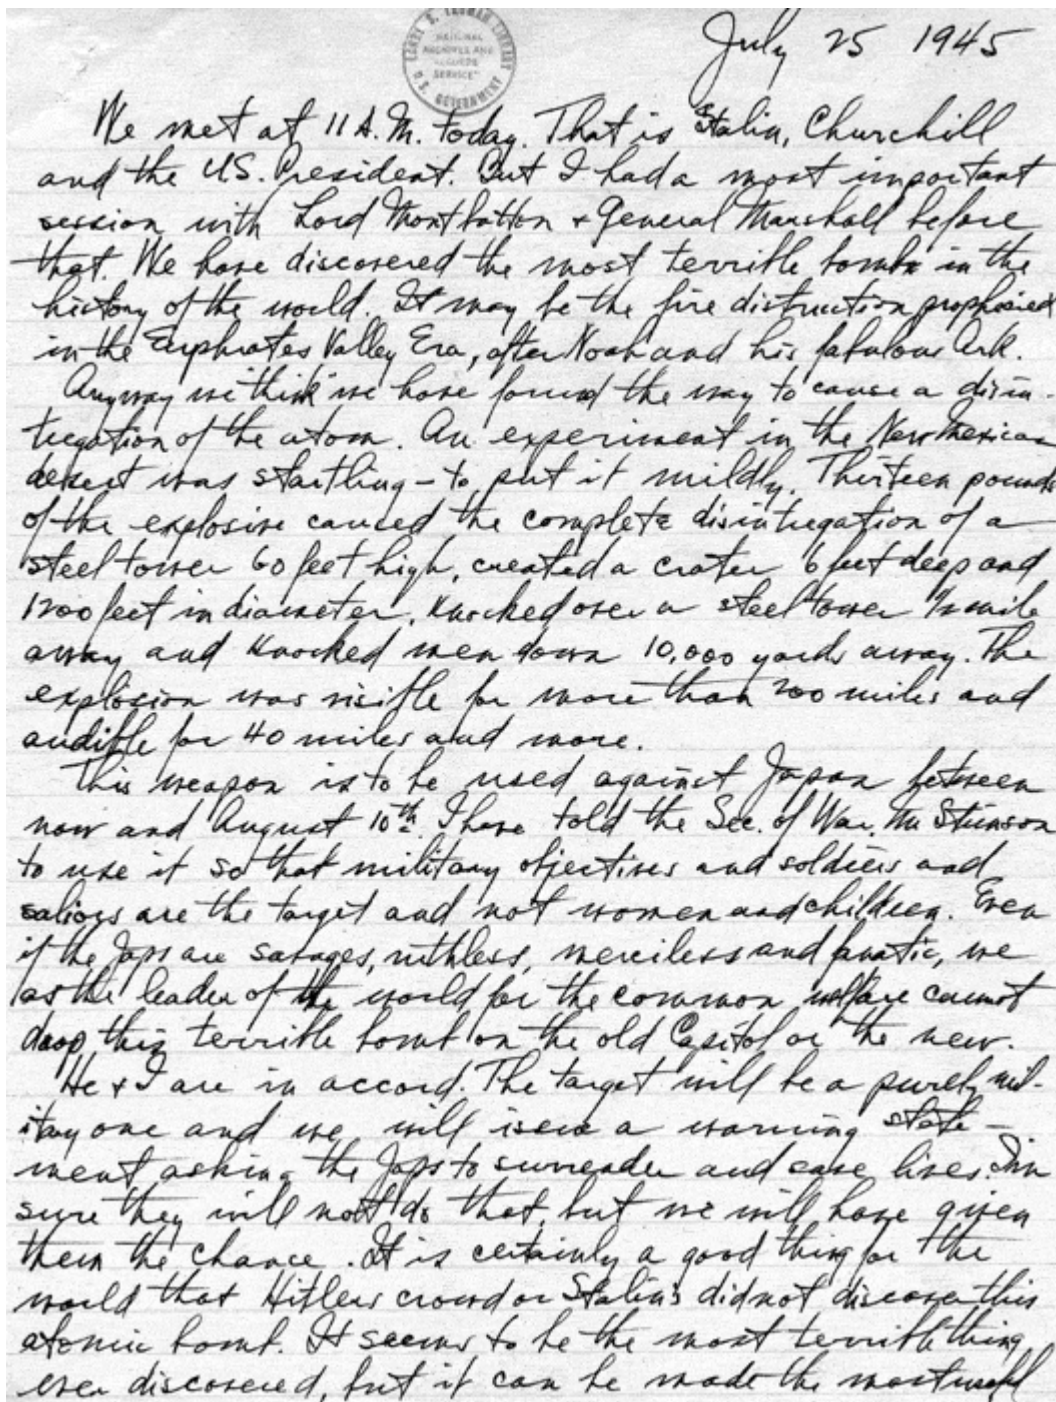 HARRY S. TRUMAN LIBRARY
NATIONAL
ARCHIVES AND
RECORDS
SERVICE
U.S. GOVERNMENT
July 25 1945
We met at 11 A.M. today. That is Stalin, Churchill
and the U.S. President. But I had a most important
session with Lord Mountbatten & General Marshall before
that. We have discovered the most terrible bomb in the
history of the world. It may be the fire distruction prophesied
in the Euphrates Valley Era, after Noah and his fabulous Ark.
Anyway we think we have found the way to cause a disin-
tegration of the atom. An experiment in the New Mexican
desert was startling - to put it mildly. Thirteen pounds
of the explosive caused the complete disintegration of a
steel tower 60 feet high, created a crater 6 feet deep and
1200 feet in diameter, knocked over a steel tower 1/2 mile
away and knocked men down 10,000 yards away. The
explosion was visible for more than 200 miles and
audible for 40 miles and more.
This weapon is to be used against Japan between
now and August 10th. I have told the Sec. of War, Mr. Stimson
to use it so that military objectives and soldiers and
sailors are the target and not women and children. Even
if the Japs are savages, ruthless, merciless and fanatic, we
as the leader of the world for the common welfare cannot
drop this terrible bomb on the old Capitol or the new.
He & I are in accord. The target will be a purely mil-
itary one and we will issue a warning state-
ment asking the Japs to surrender and save lives. I'm
sure they will not do that, but we will have given
them the chance. It is certainly a good thing for the
world that Hitlers crowd or Stalin's did not discover this
atomic bomb. It seems to be the most terrible thing
ever discovered, but it can be made the most useful